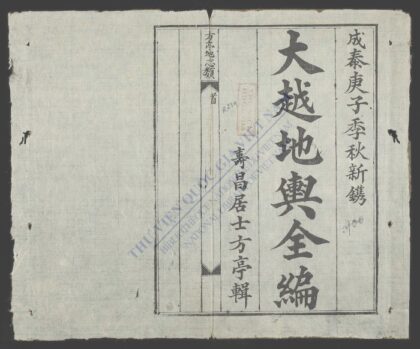 成泰庚子季秋新鐫
大越地輿全編
壽昌居士方亭輯
方亭地志類
首
THƯ VIỆN QUỐC GIA VIỆT NAM